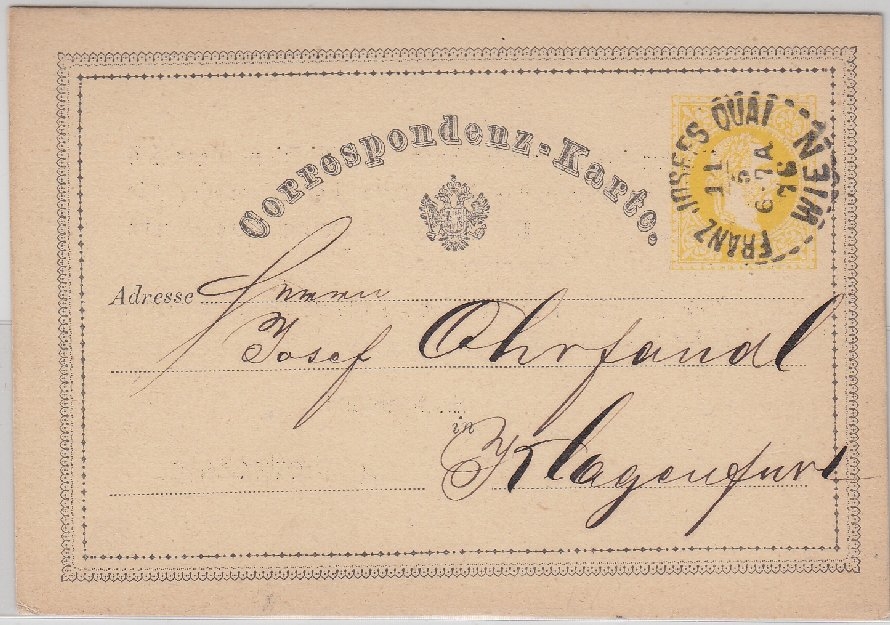 Correspondenz-Karte.
FRANZ JOSEFS QUAI WIEN
11
5
6-7A
76
Adresse Herrn
Josef Ohrfandl
in Klagenfurt